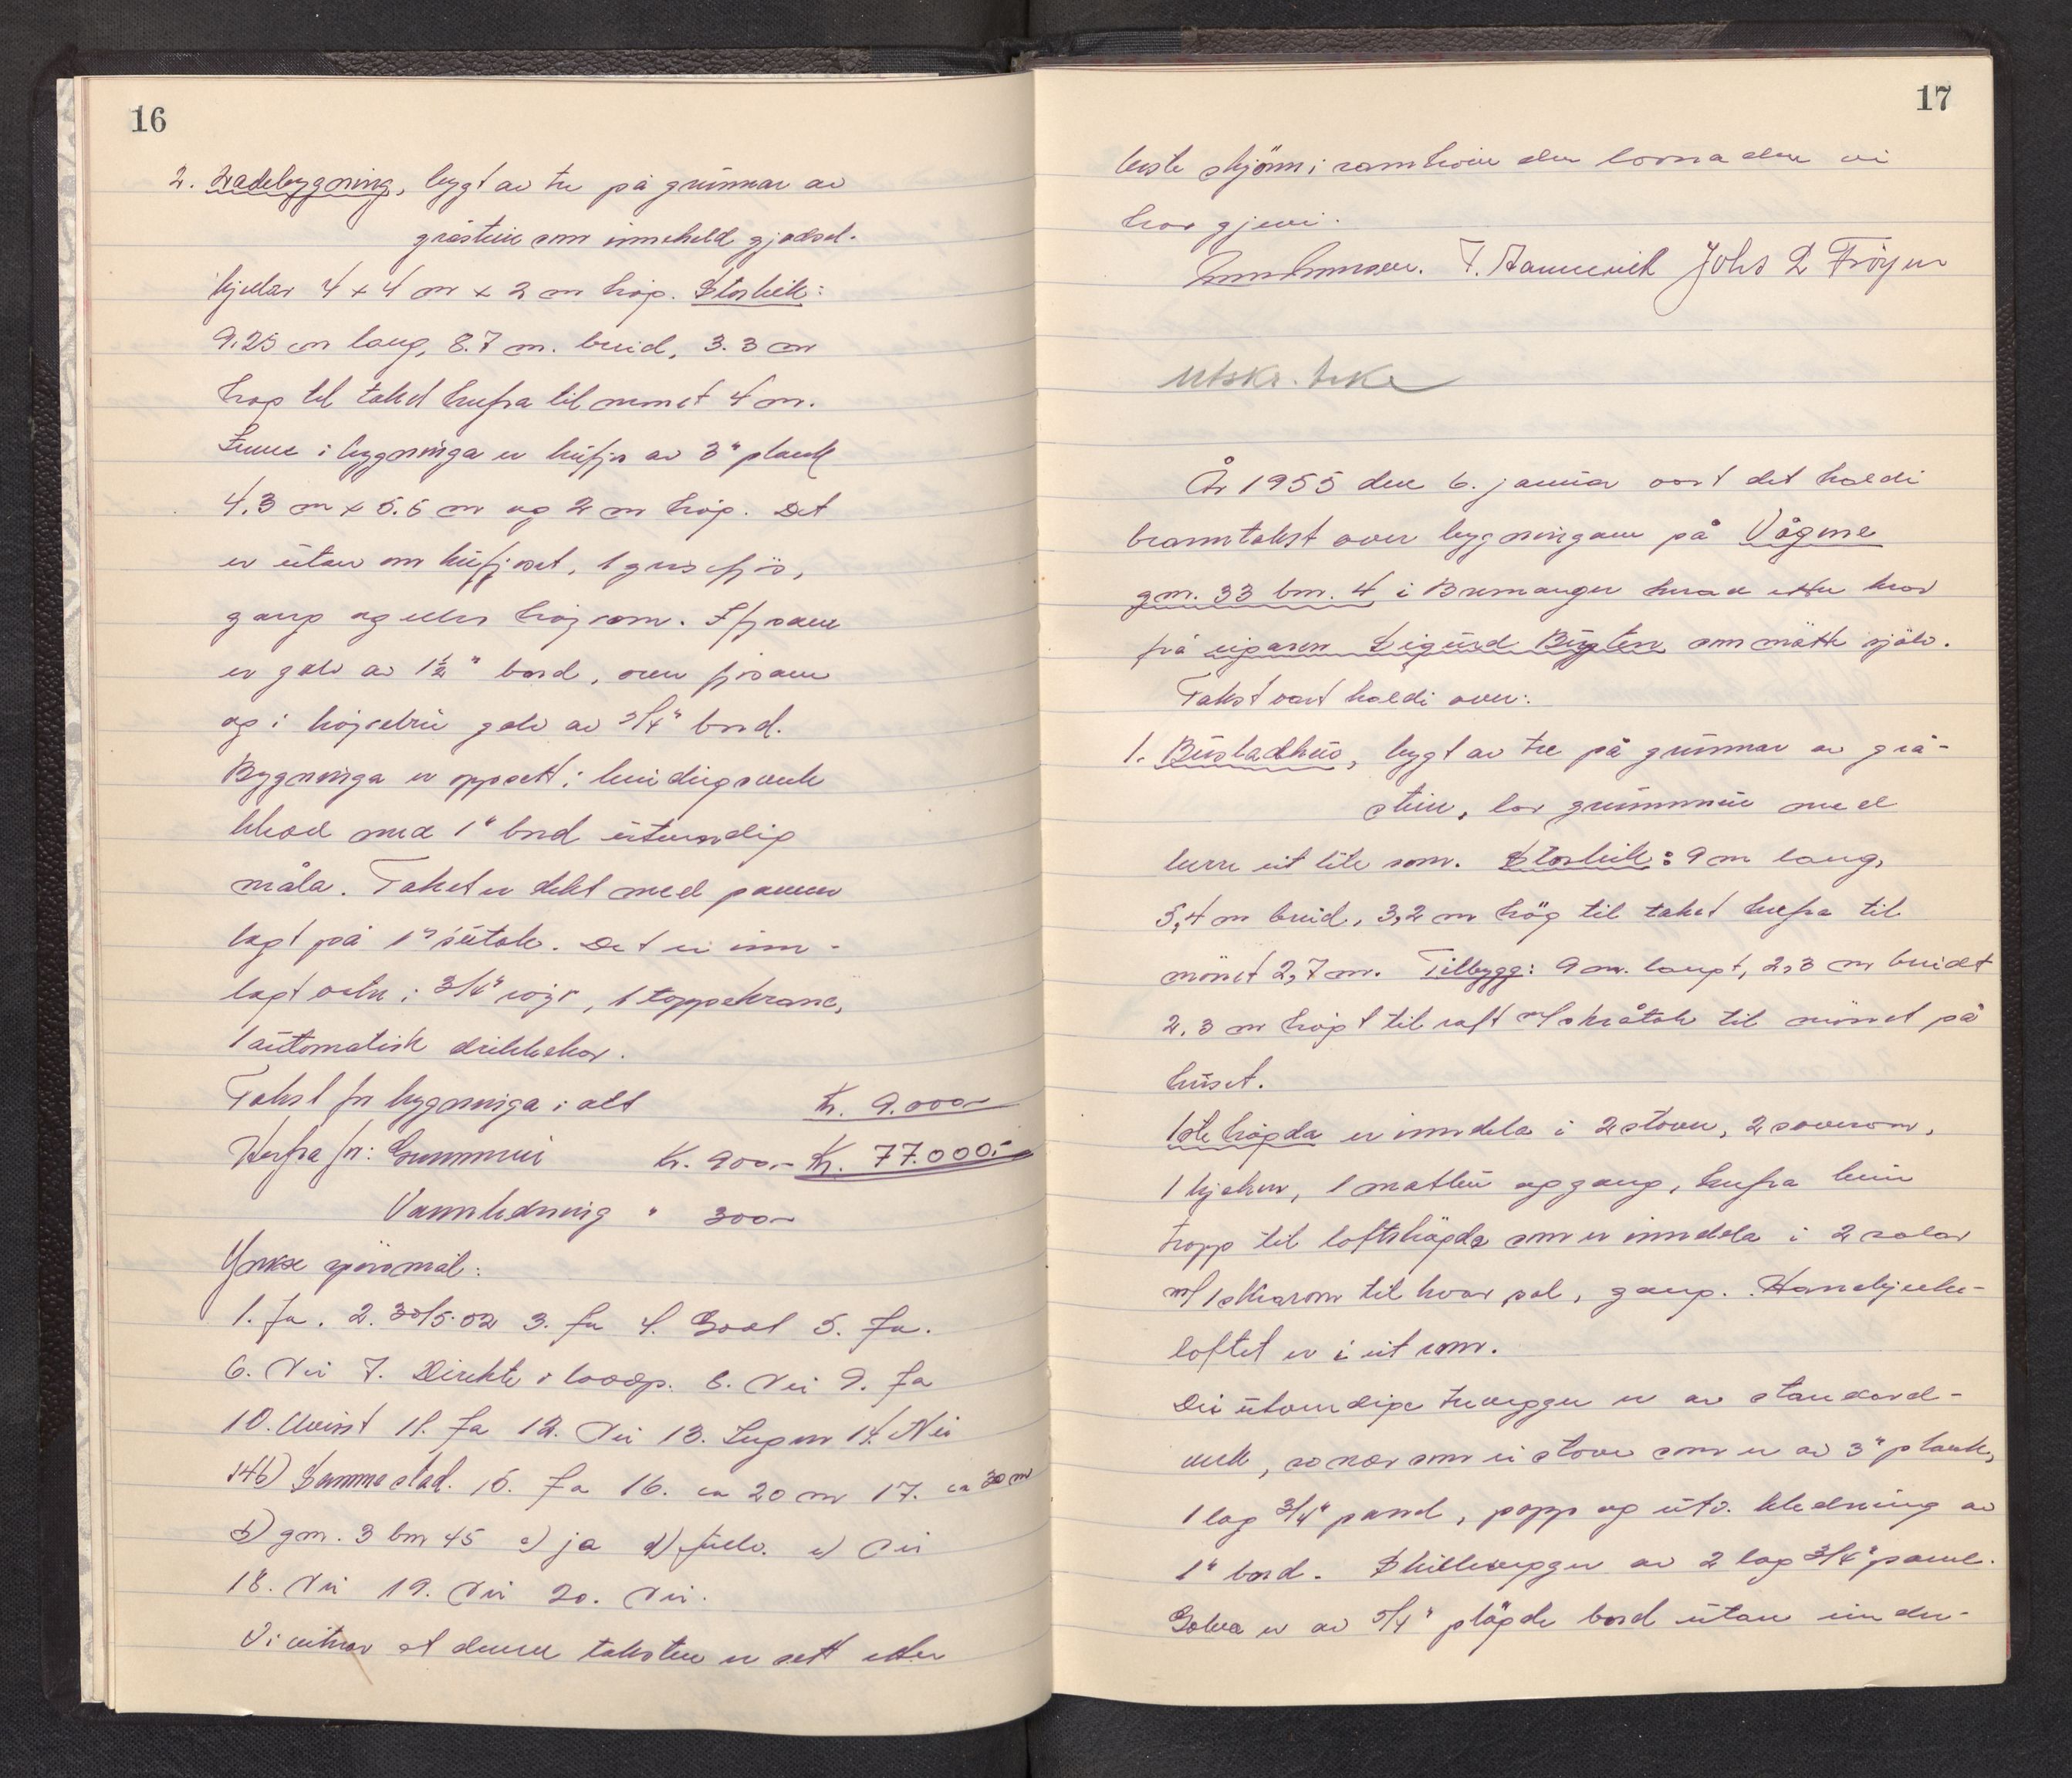 16
2. Ladebygning, bygt av tre på grunnar av
gråstein som inneheld gjødsel-
kjellar 4 x 4 m x 2 m høg. Storleik:
9.25 m lang, 8.7 m. breid, 3.3 m
høg til taket herfra til mønet 4 m.
Inne i bygninga er kufjøs av 3" plank
4.3 m x 5.5 m og 2 m høg. Det
er utan om kufjøset, 1 grisefjøs,
gang og elles høyrom. I fjøsane
er golv av 1½" bord, over fjøsane
og i høysetru golv av 5/4" bord.
Bygninga er oppsett i bindingsverk
kledd med 1" bord utvendig
måla. Taket er dekt med panner
lagt på 1" sutak. Det er inn-
lagt vatn i 3/4" røyr, 1 toppekrane,
1 automatisk drikkekar.
Takst for bygninga i alt Kr. 9.000-
Herfra for: Grunnmur Kr. 900.- Kr. 77.000.-
Vannledning " 300-
Ymse spørsmål:
1. Ja. 2. 30/5.52 3. Ja 4. God 5. Ja.
6. Nei 7. Direkte i 8. Nei 9. Ja
10. Uvisst 11. Ja 12. Nei 13. Ingen 14. Nei
14b) Samme stad. 15. Ja 16. ca 20 m 17. ca 30 m
b) gnr. 3 bnr 45 c) ja d) e) Nei
18. Nei 19. Nei 20. Nei.
Vi vitnar at denne taksten er sett etter
17
beste skjønn i samhøve den lovnaden vi
har gjevi.
J. Hammervik Johs L Frøyen
Utskr. brk.
År 1955 den 6. januar vart det haldi
branntakst over bygningane på Vågene
gnr. 33 bnr. 4 i Bremanger herad etter krav
frå eigaren Sigurd Bugten som møtte sjølv.
Takst vart haldi over:
1. Bustadhus, bygt av tre på grunnar av grå-
stein, lav grunnmur med
berre eit lite rom. Storleik: 9 m lang,
5,4 m breid, 3,2 m høg til taket herfra til
mønet 2,7 m. Tilbygg: 9 m. langt, 2,3 m breidt
2.3 m høgt til raft m/skråtak til mønet på
huset.
1ste høgda er inndela i 2 stover, 2 soverom,
1 kjøken, 1 matbu og gang, herfra ein
tropp til loftshøgda som er inndela i 2 salar
m/1 skårom til kvar sal, gang. Hanebjelke-
loftet er i eit rom.
Dei utvendige trevegger er av standard-
verk, so nær som ei stove som er av 3" plank,
1 lag 3/4" panel, papp og utv. kledning av
1" bord. Skilleveggar av 2 lag 3/4" panel.
Golva er av 5/4" pløgde bord utan under-